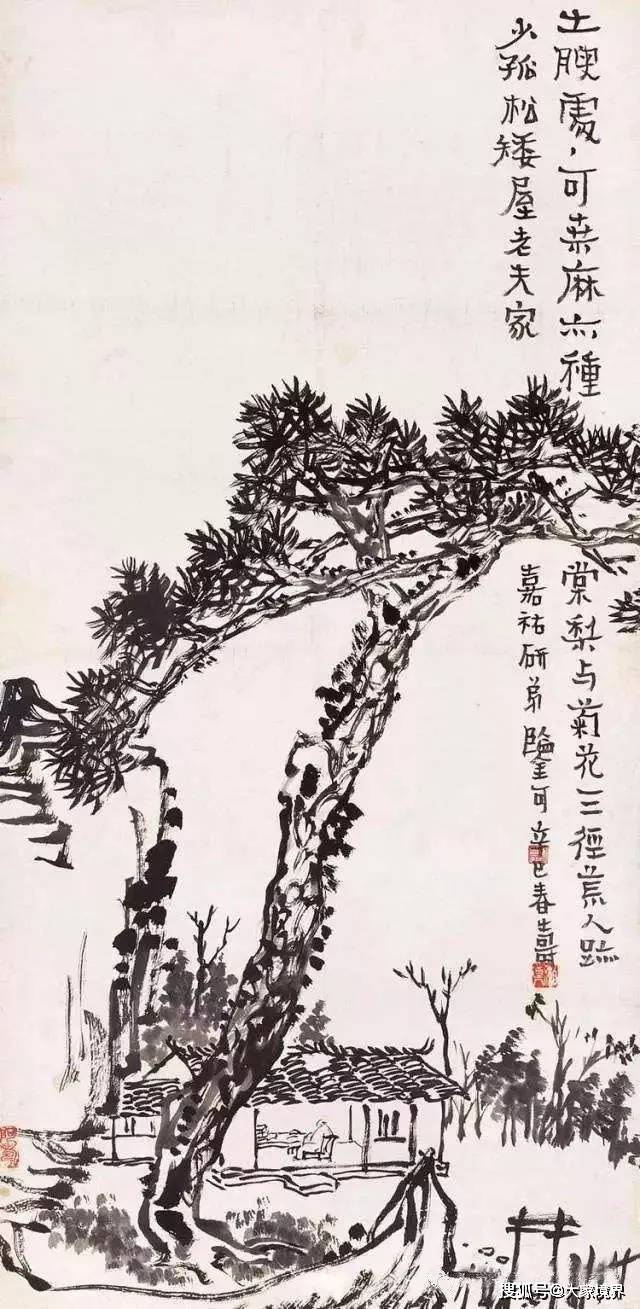 土腴處，可桑麻亦種
棠梨与菊花三徑荒人跡
少孤松矮屋老夫家
嘉祐研弟鑒可辛巳春壽
搜狐号@大家境界